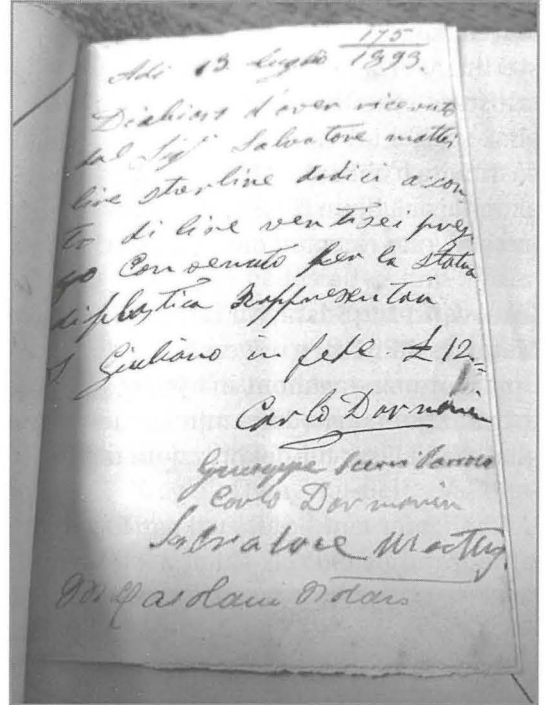 175
Adi 13 Luglio 1893.
Dichiaro d'aver ricevuto
dal Sigr Salvatore mattei
lire sterline dodici a con
to di lire ventisei prez
zo Convenuto per la statua
di plastica Rappresentan
S. Giuliano in fede £12=
Carlo Darmanin
Giuseppe
Carlo Darmanin
Salvatore